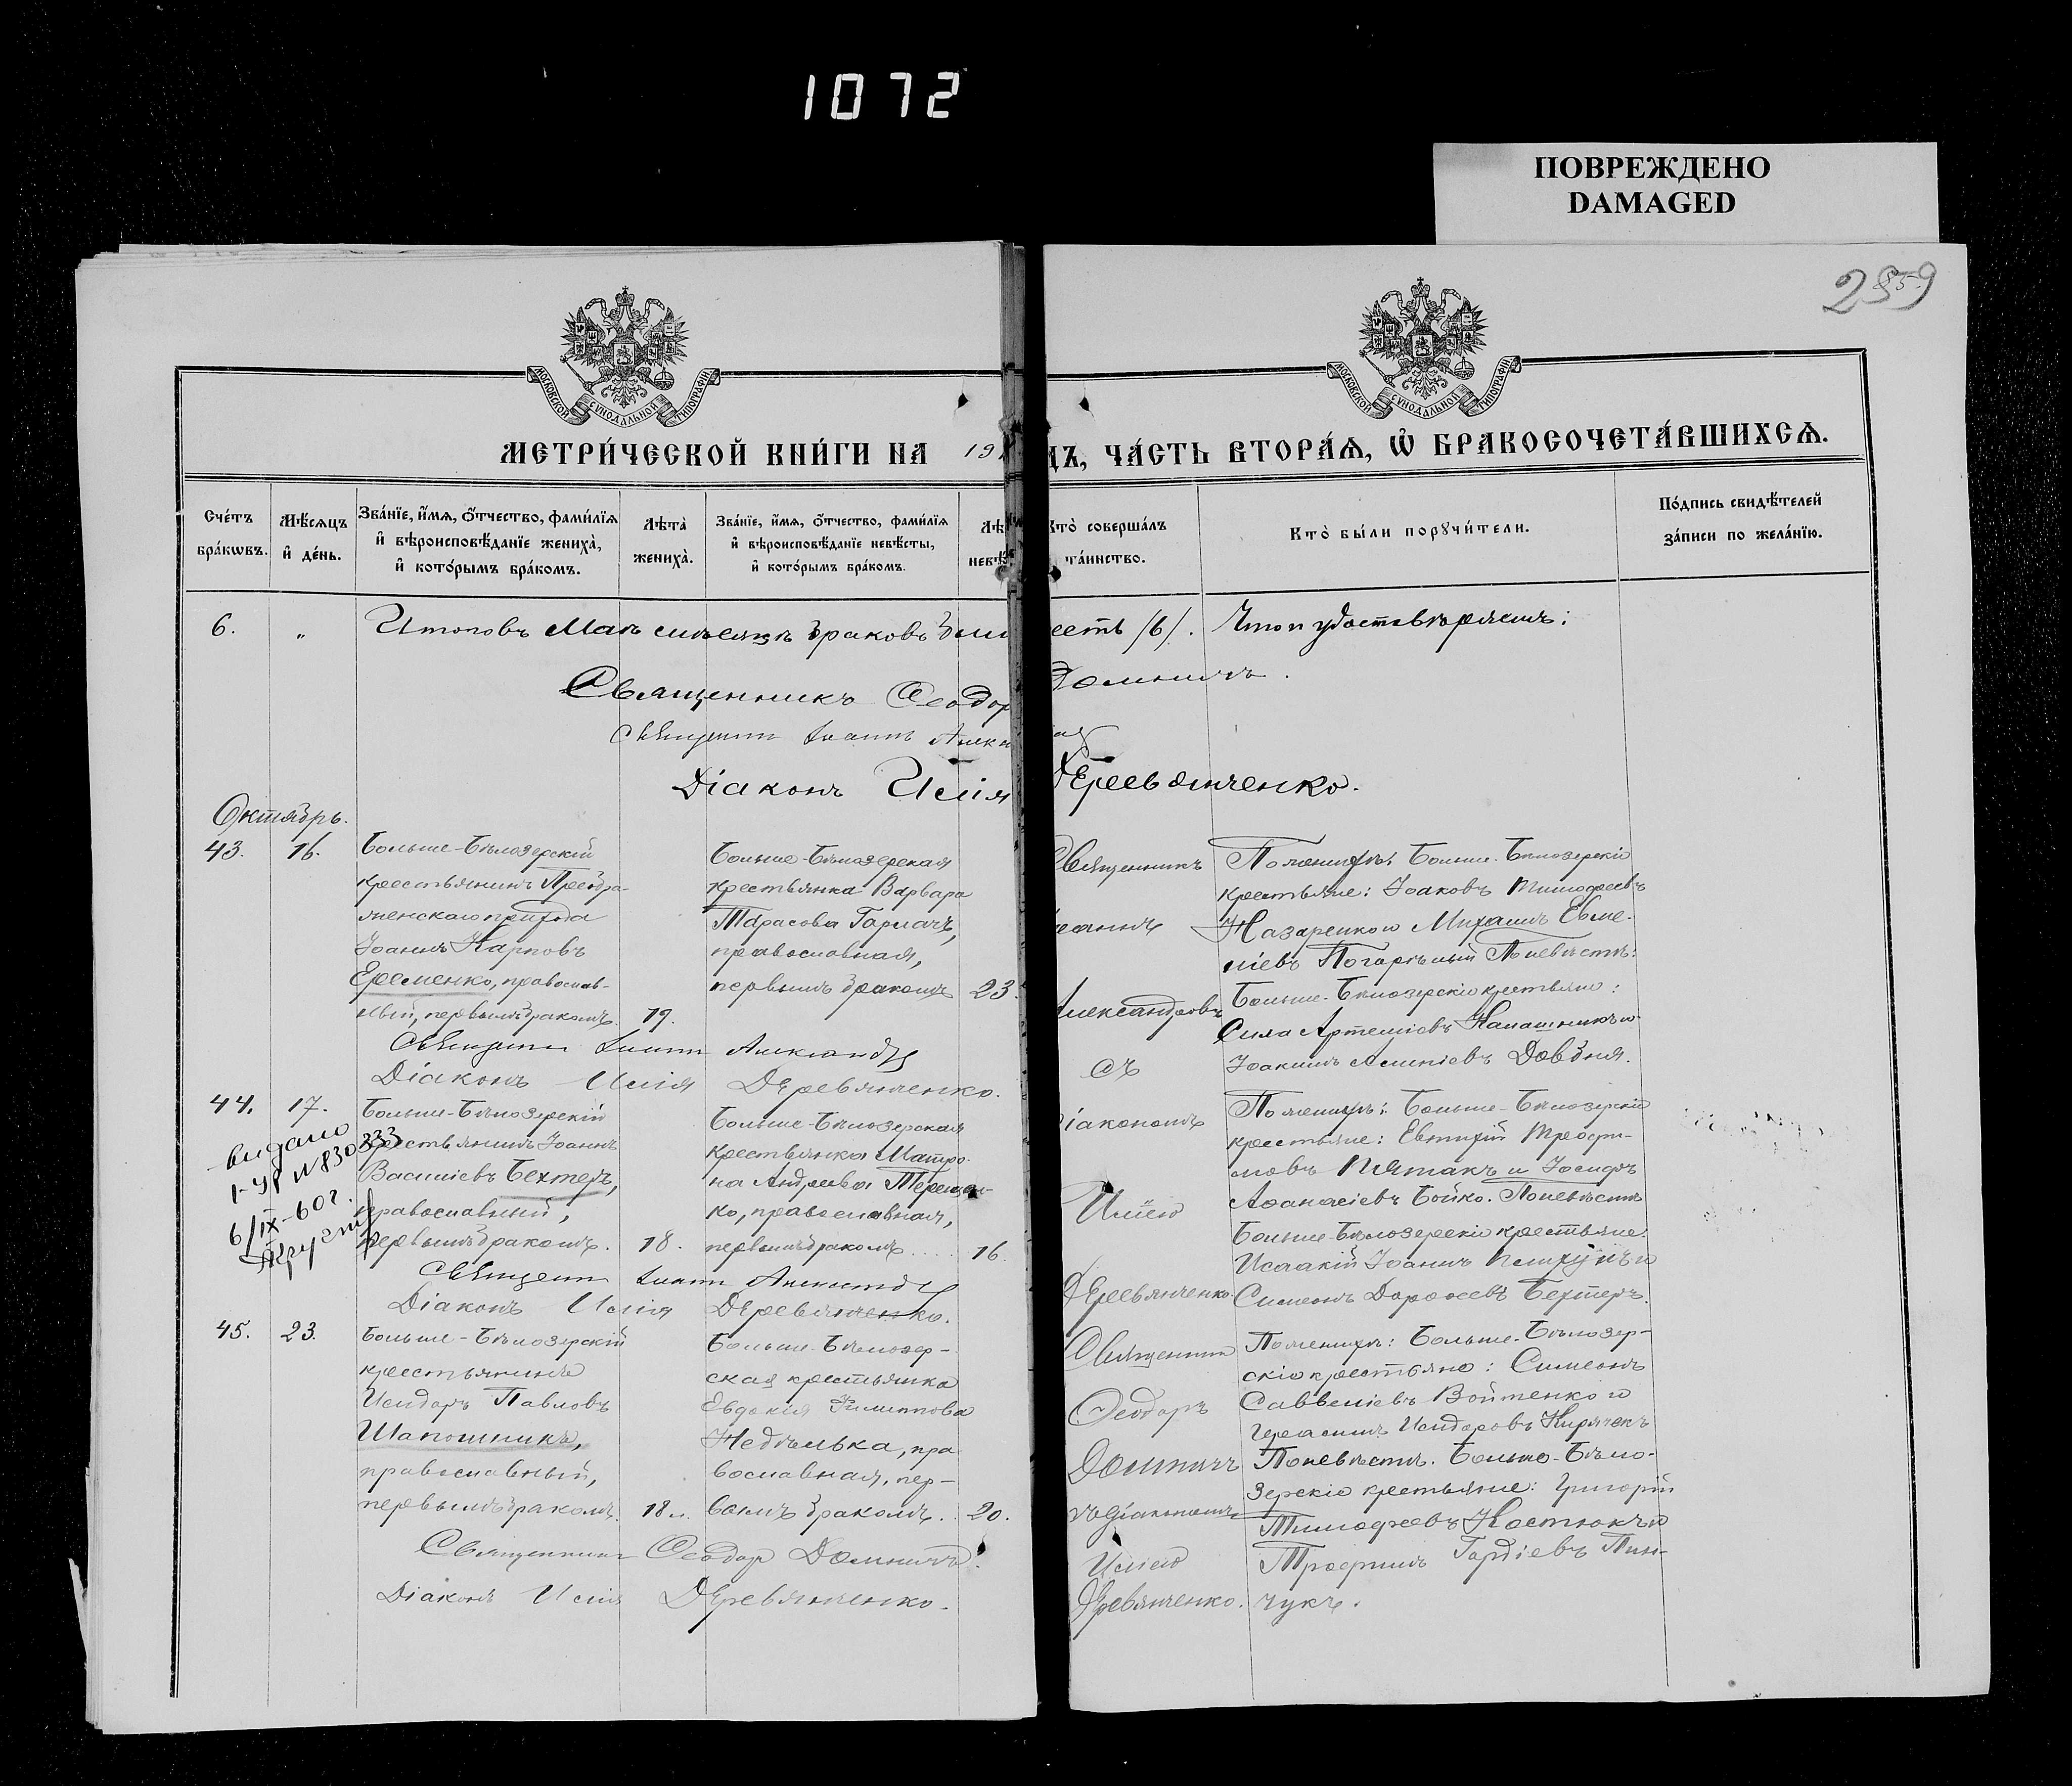 1072
ПОВРЕЖДЕНО
DAMAGED
259
МОСКОВСКОЙ СѴНОДАЛЬНОЙ ТИПОГРАФІИ
МОСКОВСКОЙ СѴНОДАЛЬНОЙ ТИПОГРАФІИ
МЕТРИ́ЧЕСКОЙ КНИ́ГИ НА 191
ДЪ, ЧА́СТЬ ВТОРА́Я, Ѡ҆ БРАКОСОЧЕТА́ВШИХСѦ.
Сче́тъ бра́кѡвъ.
Мѣ́сѧцъ и҆ де́нь.
Зва́нїе, и҆́мѧ, о҆́тчество, фами́лїѧ и҆ вѣроисповѣ́данїе жениха̀, и҆ кото́рымъ бра́комъ.
Лѣта̀ жениха̀.
Зва́нїе, и҆́мѧ, о҆́тчество, фами́лїѧ и҆ вѣроисповѣ́данїе невѣ́сты, и҆ кото́рымъ бра́комъ.
Лѣ
невѣ́
Кто̀ соверша́лъ та́инство.
Кто̀ бы́ли порꙋчи́тели.
По́дпись свидѣ́телей за́писи по жела́нїю.
6. „ Итого въ браковъ
есть /6/. Что и удостовѣряемъ:
Священникъ Ѳеодор
Доминичъ.
Священникъ Іоаннъ Алекс
Діаконъ Илія
Деревянченко.
Октябрь.
43. 16.
Больше-Бѣлозерскій
крестьянинъ Преобра-
женскаго прихода
Іоаннъ Карповъ
Еременко, православ-
ный, первымъ бракомъ. 19.
Больше-Бѣлозерская
крестьянка Варвара
Тарасова Гармачъ,
православная,
первымъ бракомъ 23.
Священникъ
Іоаннъ
Александровъ
съ
По женихѣ: Больше-Бѣлозерскіе
крестьяне: Іаковъ Тимоѳеевъ
Назаренко и Михаилъ Евме-
ніевъ По невѣстѣ:
Больше-Бѣлозерскіе крестьяне:
Сила Артеміевъ Калашникъ и
Іоакимъ Довбня.
Священникъ Іоаннъ Александр
Діаконъ Илія Деревянченко.
44. 17.
видано
I-УР №830333
6/IX-60г.
Больше-Бѣлозерскій
крестьянинъ Іоаннъ
Василіевъ Бехтеръ,
православный,
первымъ бракомъ. 18.
Больше-Бѣлозерская
крестьянка Матро-
на Андреева Терещен-
ко, православная,
первымъ бракомъ.... 16.
діакономъ
Иліею
Деревянченко.
По женихѣ: Больше-Бѣлозерскіе
крестьяне: Евтихій Трофи-
мовъ Пятакъ и Іосифъ
Аѳанасіевъ Бойко. По невѣстѣ
Больше-Бѣлозерскіе крестьяне:
Исаакій Іоанновъ и
Симеонъ Дороѳеевъ Бехтеръ.
Священникъ Іоаннъ Александр
Діаконъ Илія Деревянченко.
45. 23.
Больше-Бѣлозерскій
крестьянинъ
Исидоръ Павловъ
Шапошникъ,
православный,
первымъ бракомъ. 18 л.
Больше-Бѣлозер-
ская крестьянка
Евдокія Филиппова
Недѣлька, пра
вославная, пер-
вымъ бракомъ.. 20.
Священникъ
Ѳеодоръ
Доминичъ
съ діакономъ
Иліею
Деревянченко.
По женихѣ: Больше-Бѣлозер-
скіе крестьяне: Симеонъ
Савведіевъ Войтенко и
Герасимъ Исидоровъ Кирячекъ
По невѣстѣ: Больше-Бѣло-
зерскіе крестьяне: Григорій
Тимоѳеевъ Костюкъ и
Трофимъ Гордіевъ Пин-
чукъ.
Священникъ Ѳеодоръ Доминичъ.
Діаконъ Илія Деревянченко.